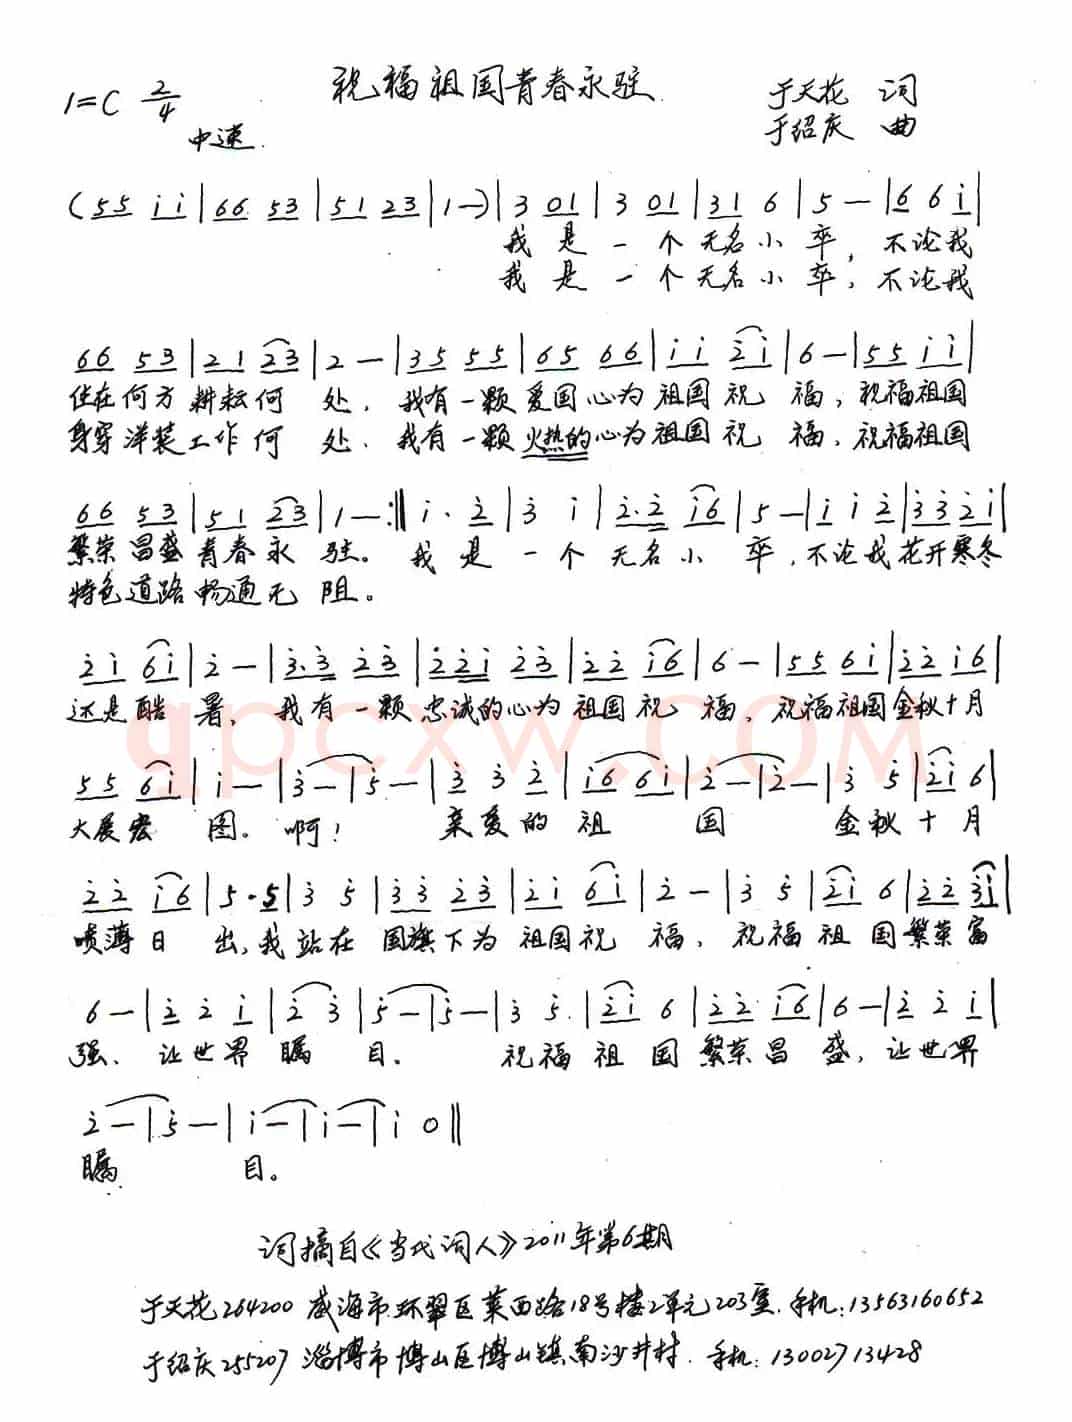 祝福祖国青春永驻
1=C 2/4
中速
于天花 词
于绍庆 曲
(55 i i | 66 53 | 51 23 | 1 —) | 3 01 | 3 01 | 31 6 | 5 — | 6 6 i |
我是一个无名小卒,不论我
我是一个无名小卒,不论我
66 53 | 21 23 | 2 — | 35 55 | 65 66 | i i 2̇i | 6 — | 55 i i |
住在何方耕耘何处,我有一颗爱国心为祖国祝福,祝福祖国
身穿洋装工作何处,我有一颗火热的心为祖国祝福,祝福祖国
66 53 | 51 23 | 1 — :‖ i· 2̇ | 3̇ i | 2̇·2̇ i6 | 5 — | i i 2̇ | 3̇3̇ 2̇i |
繁荣昌盛青春永驻。我是一个无名小卒,不论我花开寒冬
特色道路畅通无阻。
2̇i 6i | 2̇ — | 3̇·3̇ 2̇3̇ | 2̇2̇i 2̇3̇ | 2̇2̇ i6 | 6 — | 55 6i | 2̇2̇ i6 |
还是酷暑,我有一颗忠诚的心为祖国祝福,祝福祖国金秋十月
qpcxw.com
55 6i | i — | 3̇ — | 5̇ — | 3̇ 3̇ 2̇ | i6 6i | 2̇ — | 2̇ — | 3̇ 5̇ | 2̇i 6 |
大展宏图。啊!亲爱的祖国金秋十月
2̇2̇ i6 | 5·5 | 3̇ 5̇ | 3̇3̇ 2̇3̇ | 2̇i 6i | 2̇ — | 3̇ 5̇ | 2̇i 6 | 2̇2̇ 3̇i |
喷薄日出,我站在国旗下为祖国祝福,祝福祖国繁荣富
6 — | 2̇ 2̇ i | 2̇ 3̇ | 5̇ — | 5̇ — | 3̇ 5̇ | 2̇i 6 | 2̇2̇ i6 | 6 — | 2̇ 2̇ i |
强、让世界瞩目。祝福祖国繁荣昌盛,让世界
2̇ — | 5̇ — | i — | i — | i 0 ‖
瞩目。
词摘自《当代词人》2011年第6期
于天花264200 威海市环翠区莱西路18号楼2单元203室.手机:13563160652
于绍庆255207 淄博市博山区博山镇南沙井村.手机:13002713428